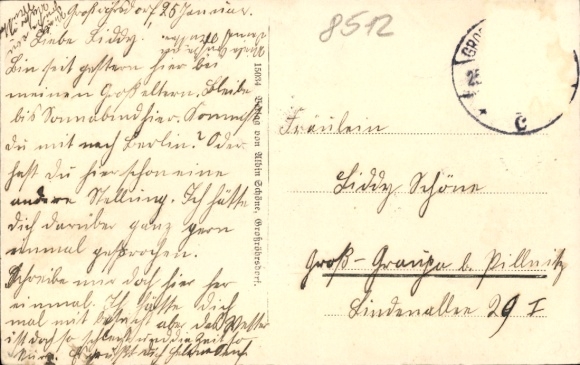 Großröhrsdorf, 25 Januar.
Liebe Liddy!
Bin seit gestern hier bei
meinen Großeltern. Bleibe
bis Sonnabend hier. Kommst
du mit nach Berlin? Oder
hast du hier schon eine
andere Stellung. Ich hätte
dich darüber ganz gern
einmal gesprochen.
Schreibe mir doch hier her
einmal. Ich hätte dich
mal mit aber das Wetter
ist doch so schlecht und die Zeit so
kurz.
15034 Verlag von Albin Schöne, Großröhrsdorf.
8512
GRO
25
C
Fräulein
Liddy Schöne
Groß-Graupa b. Pillnitz
Lindenallee 29 I